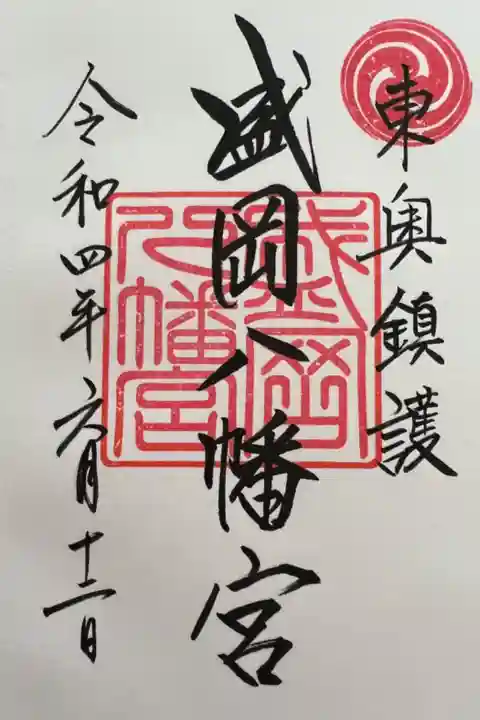 東奥鎮護
盛岡八幡宮
盛岡八幡宮
令和四年六月十二日